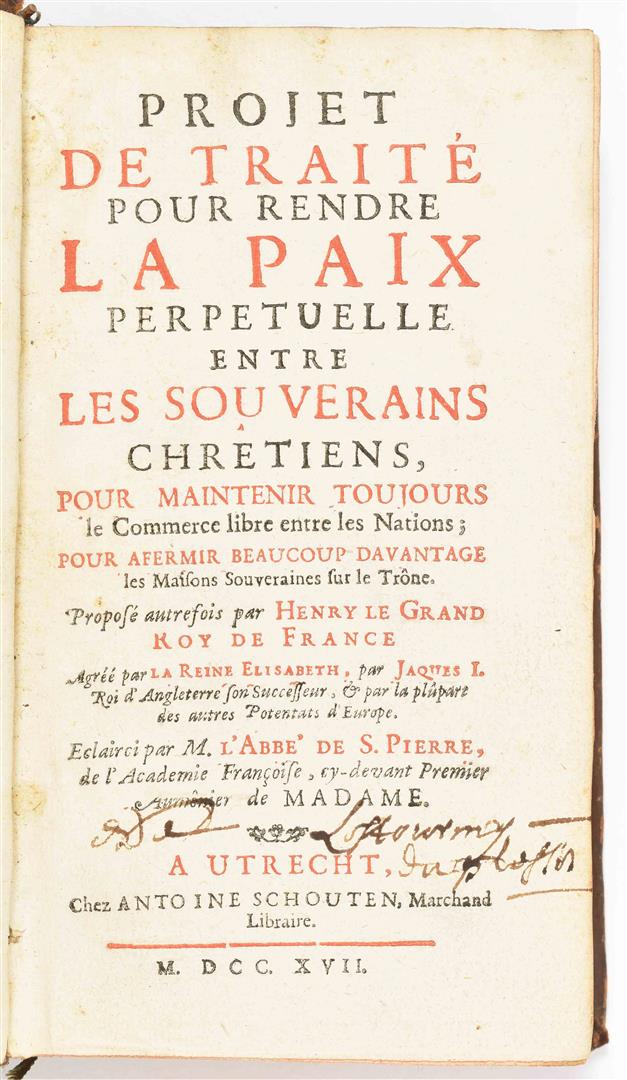 PROJET
DE TRAITÉ
POUR RENDRE
LA PAIX
PERPETUELLE
ENTRE
LES SOUVERAINS
CHRÉTIENS,
POUR MAINTENIR TOUJOURS
le Commerce libre entre les Nations;
POUR AFERMIR BEAUCOUP DAVANTAGE
les Maiſons Souveraines ſur le Trône.
Propoſé autrefois par HENRY LE GRAND
ROY DE FRANCE
Agréé par LA REINE ELISABETH, par JAQUES I.
Roi d'Angleterre ſon Succeſſeur, & par la plûpart
des autres Potentats d'Europe.
Eclairci par M. L'ABBE' DE S. PIERRE,
de l'Academie Françoiſe, cy-devant Premier
Aumônier de MADAME.
A UTRECHT,
Chez ANTOINE SCHOUTEN, Marchand
Libraire.
M. DCC. XVII.